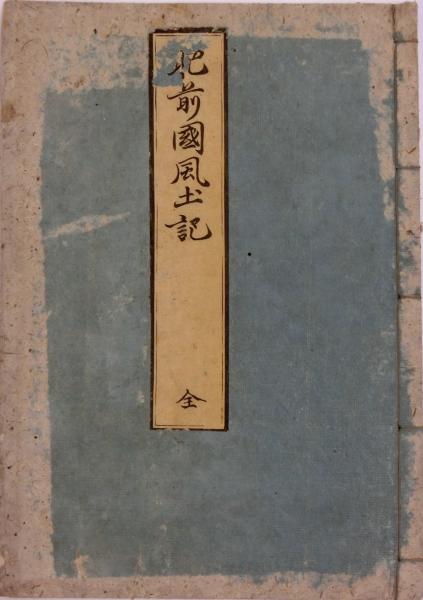 肥前國風土記
全